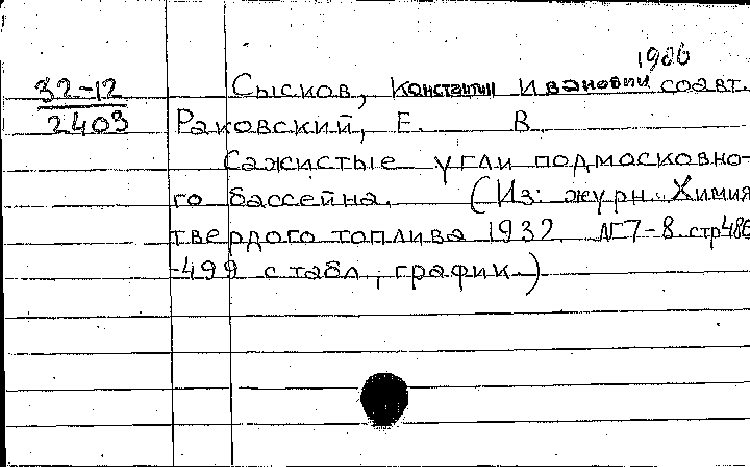 1906
32-12 Сысков, Константин Иванович соавт.
2403 Раковский, Е. В.
Сажистые угли подмосковно-
го бассейна. (Из: журн. Химия
твердого топлива 1932 №7-8 стр486
-499 с табл, график.)